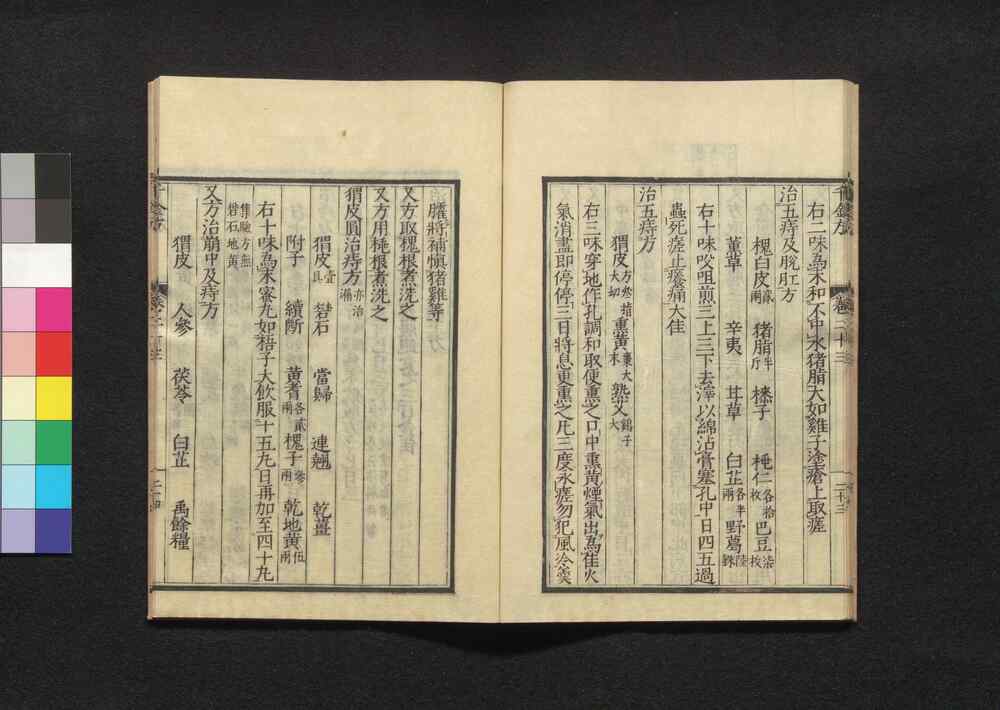 右二味爲末和不中水猪脂大如雞子塗瘡上取瘥
治五痔及脫肛方
槐白皮貳兩 猪脂半斤 槵子 桃仁各拾枚 巴豆柒枚
葷草 辛夷 茸草 白芷各半兩 野葛陸銖
右十味㕮咀煎三上三下去滓以綿沾膏塞孔中日四五過
蟲死瘥止癢痛大佳
治五痔方
猬皮方叁指大切 熏黃棗大末 熟艾鷄子大
右三味穿地作孔調和取便熏之口中熏黃煙氣出爲佳火
氣消盡即停停三日將息更熏之凡三度永瘥勿犯風冷羹
臛將補愼猪雞等
又方取槐根煮洗之
又方用桃根煮洗之
猬皮圓治痔方亦治漏
猬皮壹具 礜石 當歸 連翹 乾薑
附子 續斷 黃耆各貳兩 槐子叁兩 乾地黃伍兩
右十味爲末蜜丸如梧子大飮服十五丸日再加至四十丸
集驗方無礜石地黃
又方治崩中及痔方
猬皮 人參 茯苓 白芷 禹餘糧